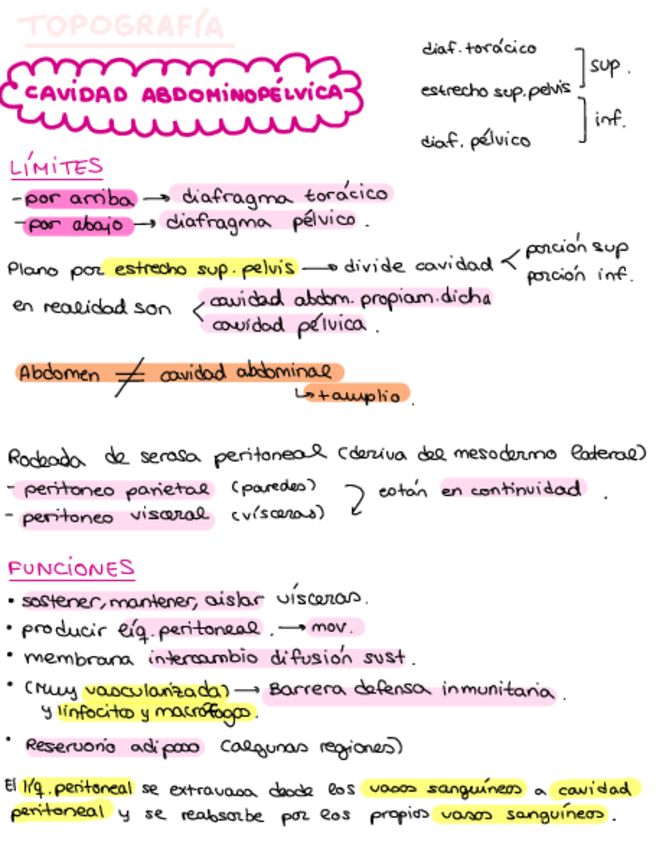 TOPOGRAFÍA
CAVIDAD ABDOMINOPÉLVICA
diaf. torácico
sup.
estrecho sup. pelvis
inf.
diaf. pélvico
LÍMITES
- por arriba → diafragma torácico
- por abajo → diafragma pélvico.
Plano por estrecho sup. pelvis → divide cavidad < porción sup
porción inf.
en realidad son < cavidad abdom. propiam. dicha
cavidad pélvica.
Abdomen ≠ cavidad abdominal
↳ + amplio.
Rodeada de serosa peritoneal (deriva del mesodermo lateral)
- peritoneo parietal (paredes)
están en continuidad.
- peritoneo visceral (vísceras)
FUNCIONES
• sostener, mantener, aislar vísceras.
• producir líq. peritoneal. → mov.
• membrana intercambio difusión sust.
• (Muy vascularizada) → Barrera defensa inmunitaria.
y linfocitos y macrófagos.
• Reservorio adiposo (algunas regiones)
El líq. peritoneal se extravasa desde los vasos sanguíneos a cavidad
peritoneal y se reabsorbe por los propios vasos sanguíneos.